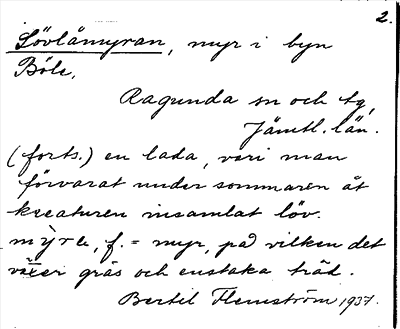 2.
Lövlåmyran, myr i byn
Böle,
Ragunda sn och tg,
Jämtl. län.
(forts.) en lada, vari man
förvarat under sommaren åt
kreaturen insamlat löv.
mỳra, f. = myr, på vilken det
växer gräs och enstaka träd.
Bertil Flemström 1937.